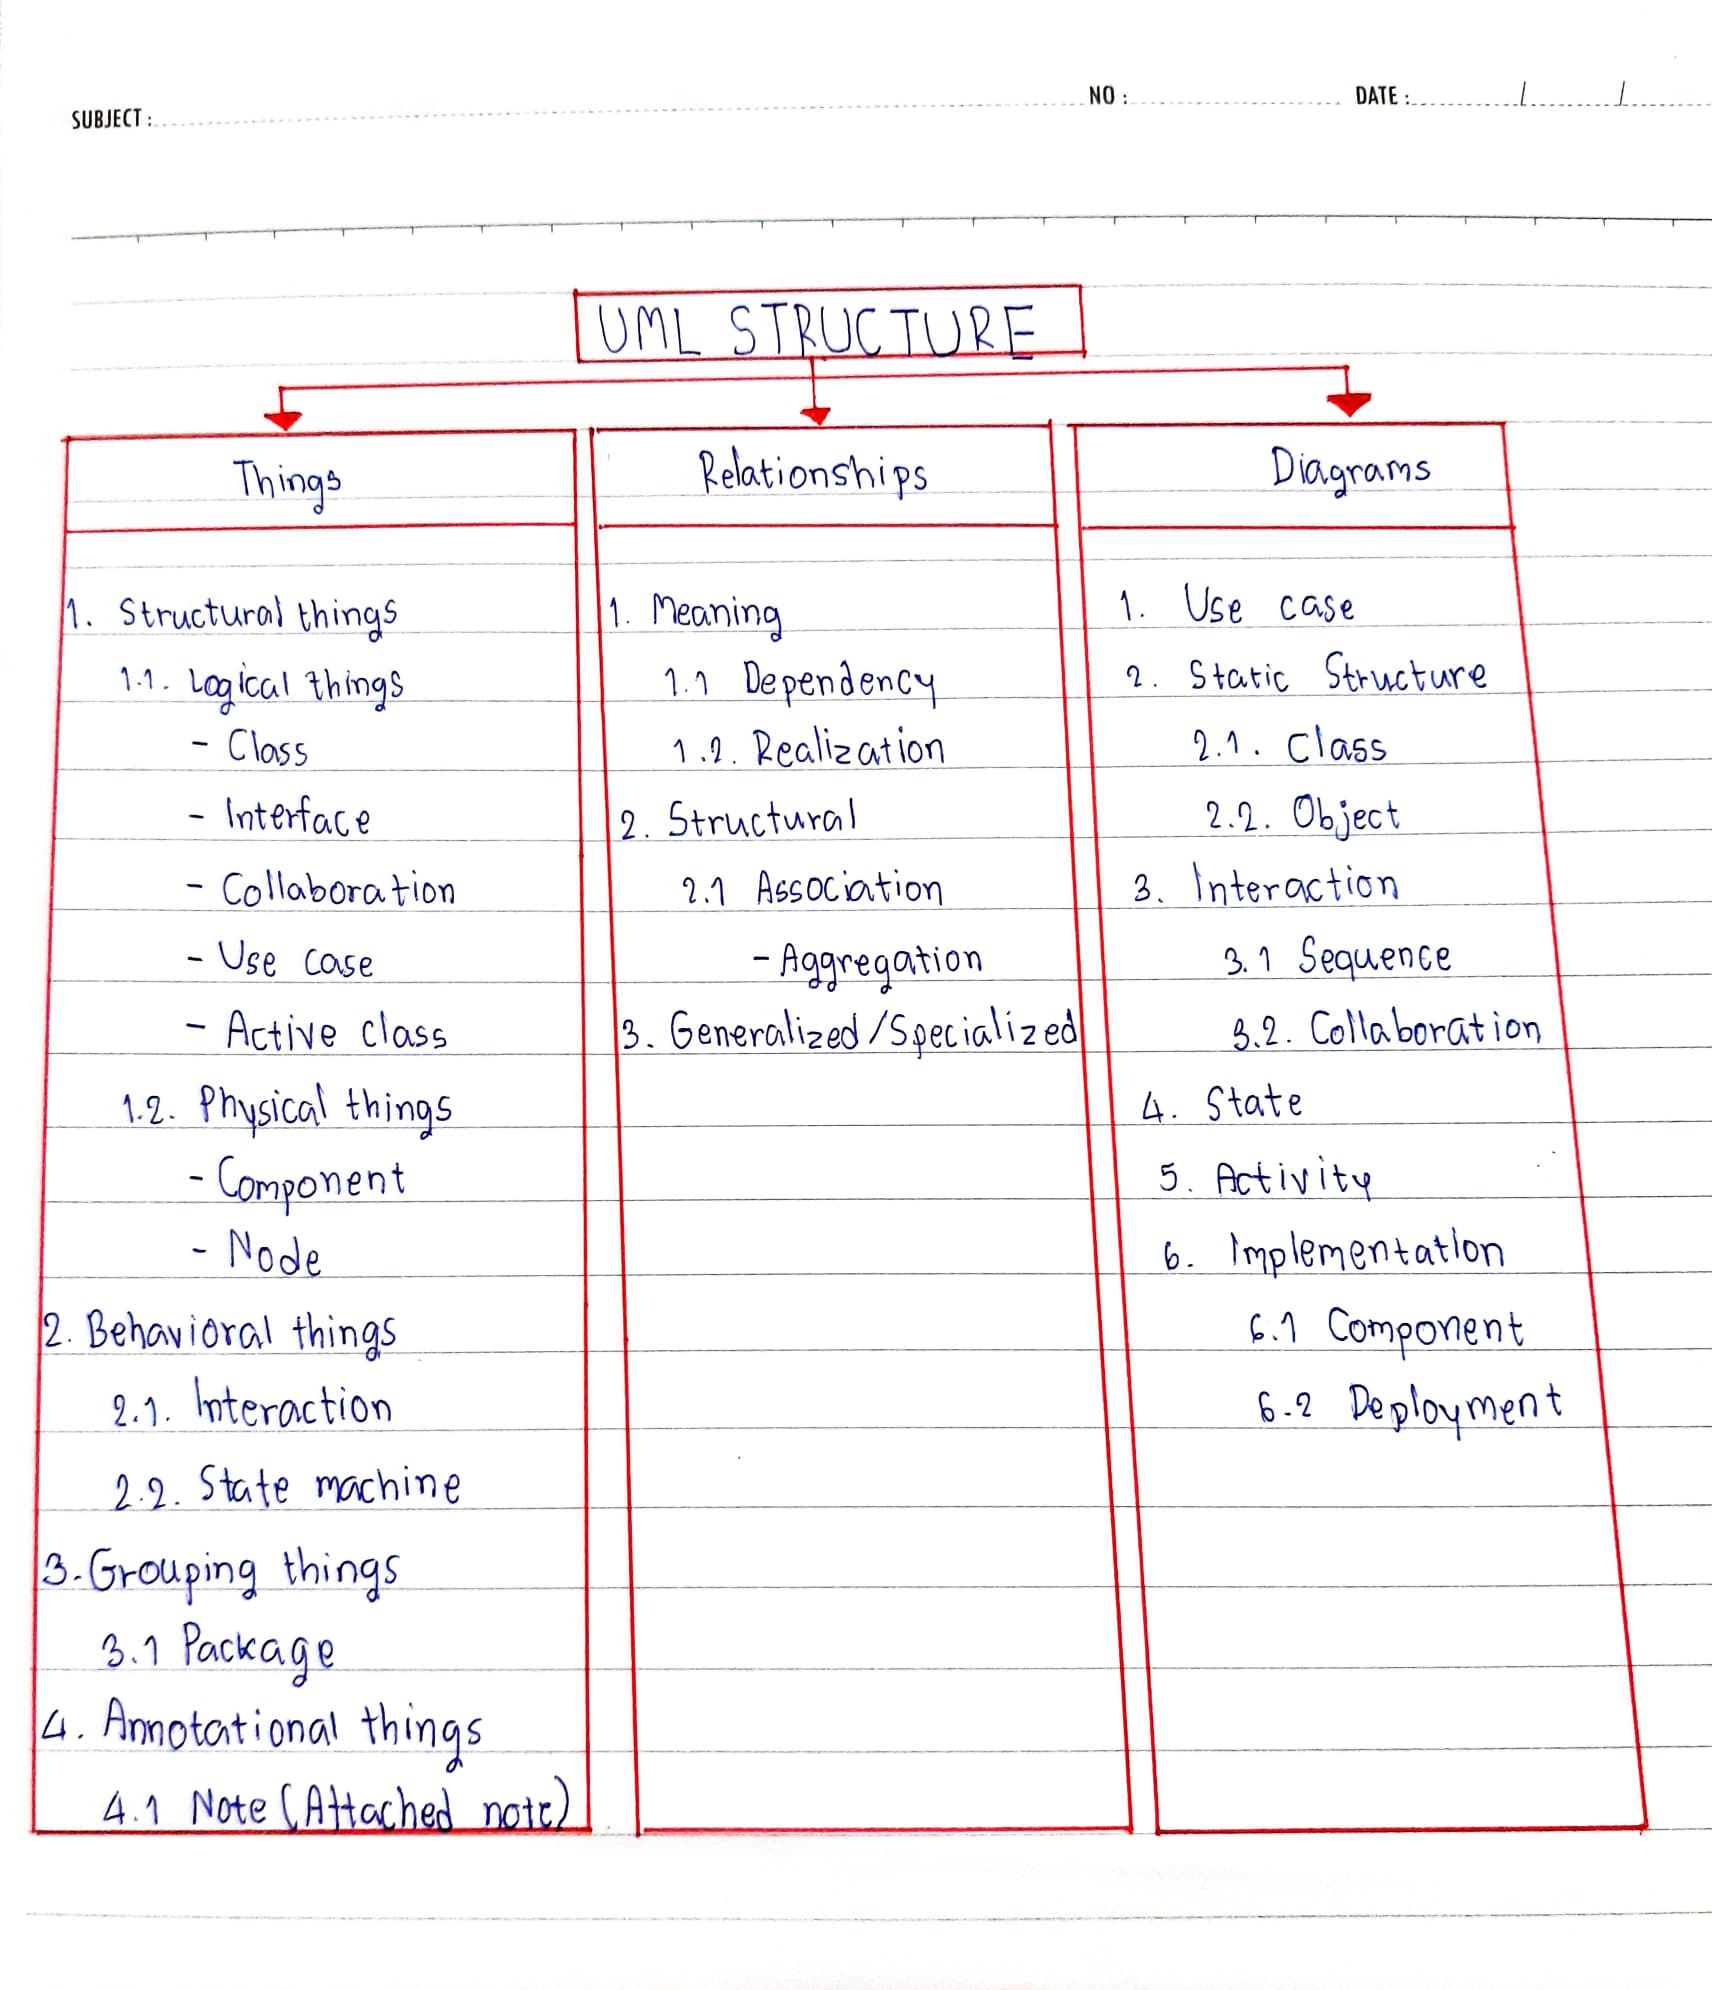 SUBJECT :
NO :
DATE : / /
UML STRUCTURE
Things
1. Structural things
1.1. Logical things
- Class
- Interface
- Collaboration
- Use case
- Active class
1.2. Physical things
- Component
- Node
2. Behavioral things
2.1. Interaction
2.2. State machine
3. Grouping things
3.1 Package
4. Annotational things
4.1 Note (Attached note)
Relationships
1. Meaning
1.1 Dependency
1.2. Realization
2. Structural
2.1 Association
- Aggregation
3. Generalized/Specialized
Diagrams
1. Use case
2. Static Structure
2.1. Class
2.2. Object
3. Interaction
3.1 Sequence
3.2. Collaboration
4. State
5. Activity
6. Implementation
6.1 Component
6.2 Deployment